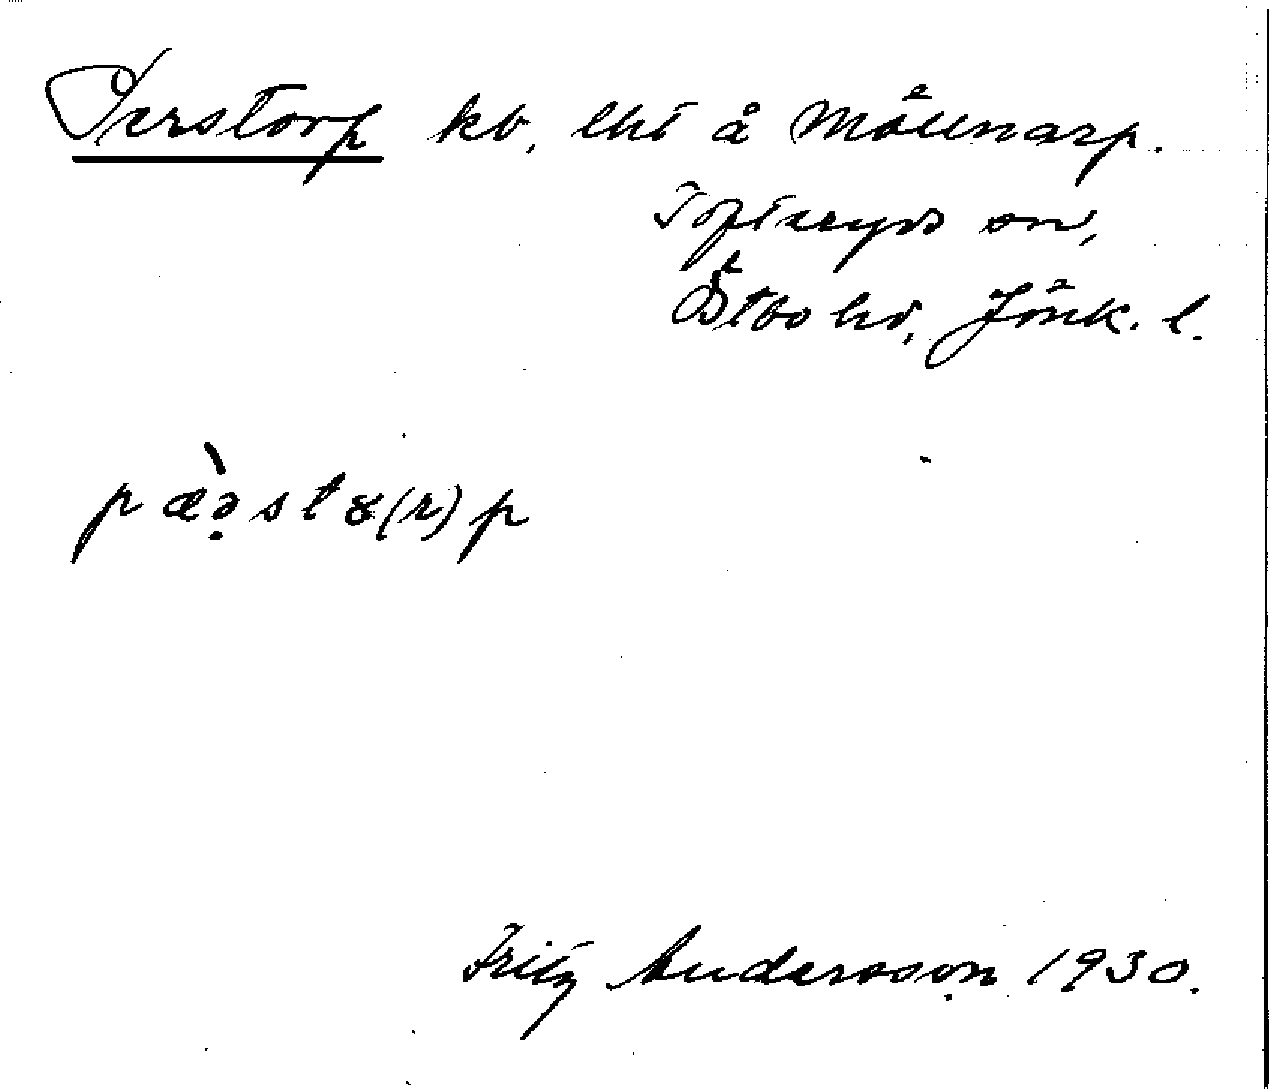 Perstorp kb, lht å Målnarp.
Tofteryds sn,
Östbo hd, Jönk. l.
pæ̀ə̣stɤ(r)p
Fritz Andersson 1930.